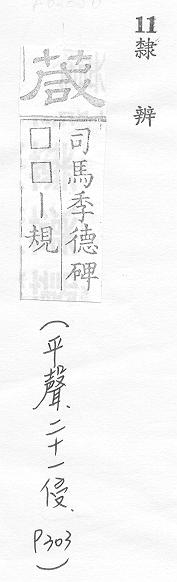 11隸辨
葴
司馬季德碑
□□丨規
(平聲、二十一侵、P303)